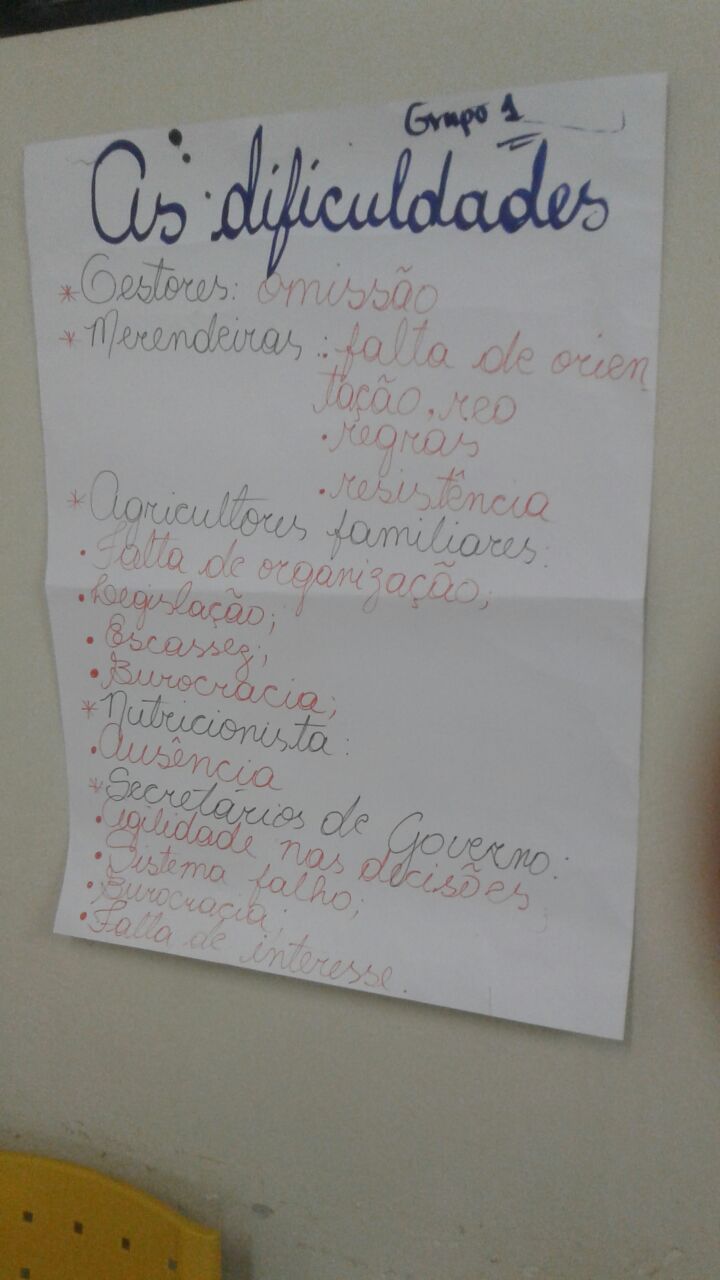 Grupo 1
As dificuldades
* Gestores: omissão
* Merendeiras : . falta de orien
tação, reo
. regras
. resistência
* Agricultores familiares:
. Falta de organização;
. Legislação;
. Escassez;
. Burocracia;
* Nutricionista:
. Ausência
* Secretários de Governo:
. Agilidade nas decisões
. Sistema falho;
. Burocracia;
. Falta de interesse.